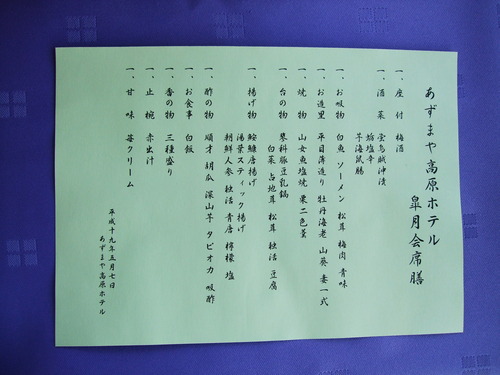 あずまや高原ホテル
皐月会席膳
一、座付 梅酒
一、酒菜 蛍烏賊沖漬
蛸塩辛
芋海鼠腸
一、お吸物 白魚 ソーメン 松茸 梅肉 青味
一、お造里 平目薄造り 牡丹海老 山葵 妻一式
一、焼物 山女魚塩焼 栗二色
一、台の物 蓼科豚豆乳鍋
白菜 占地茸 松茸 独活 豆腐
一、揚げ物 鮟鱇唐揚げ
湯葉スティック揚げ
朝鮮人参 独活 青唐 檸檬 塩
一、酢の物 順才 胡瓜 深山芋 タピオカ 吸酢
一、お食事 白飯
一、香の物 三種盛り
一、止椀 赤出汁
一、甘味 苺クリーム
平成十九年五月七日
あずまや高原ホテル